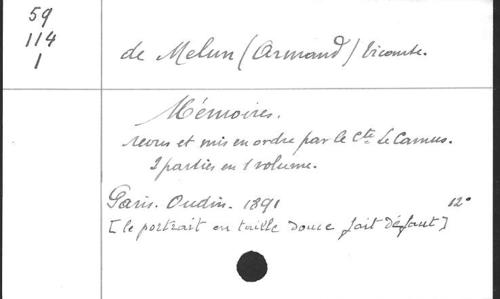 59
114
1
de Melun (Armand) Vicomte.
Mémoires.
revus et mis en ordre par le Cte Le Camus.
2 parties en 1 volume.
Paris. Oudin. 1891 12°
[le portrait en taille douce fait défaut]